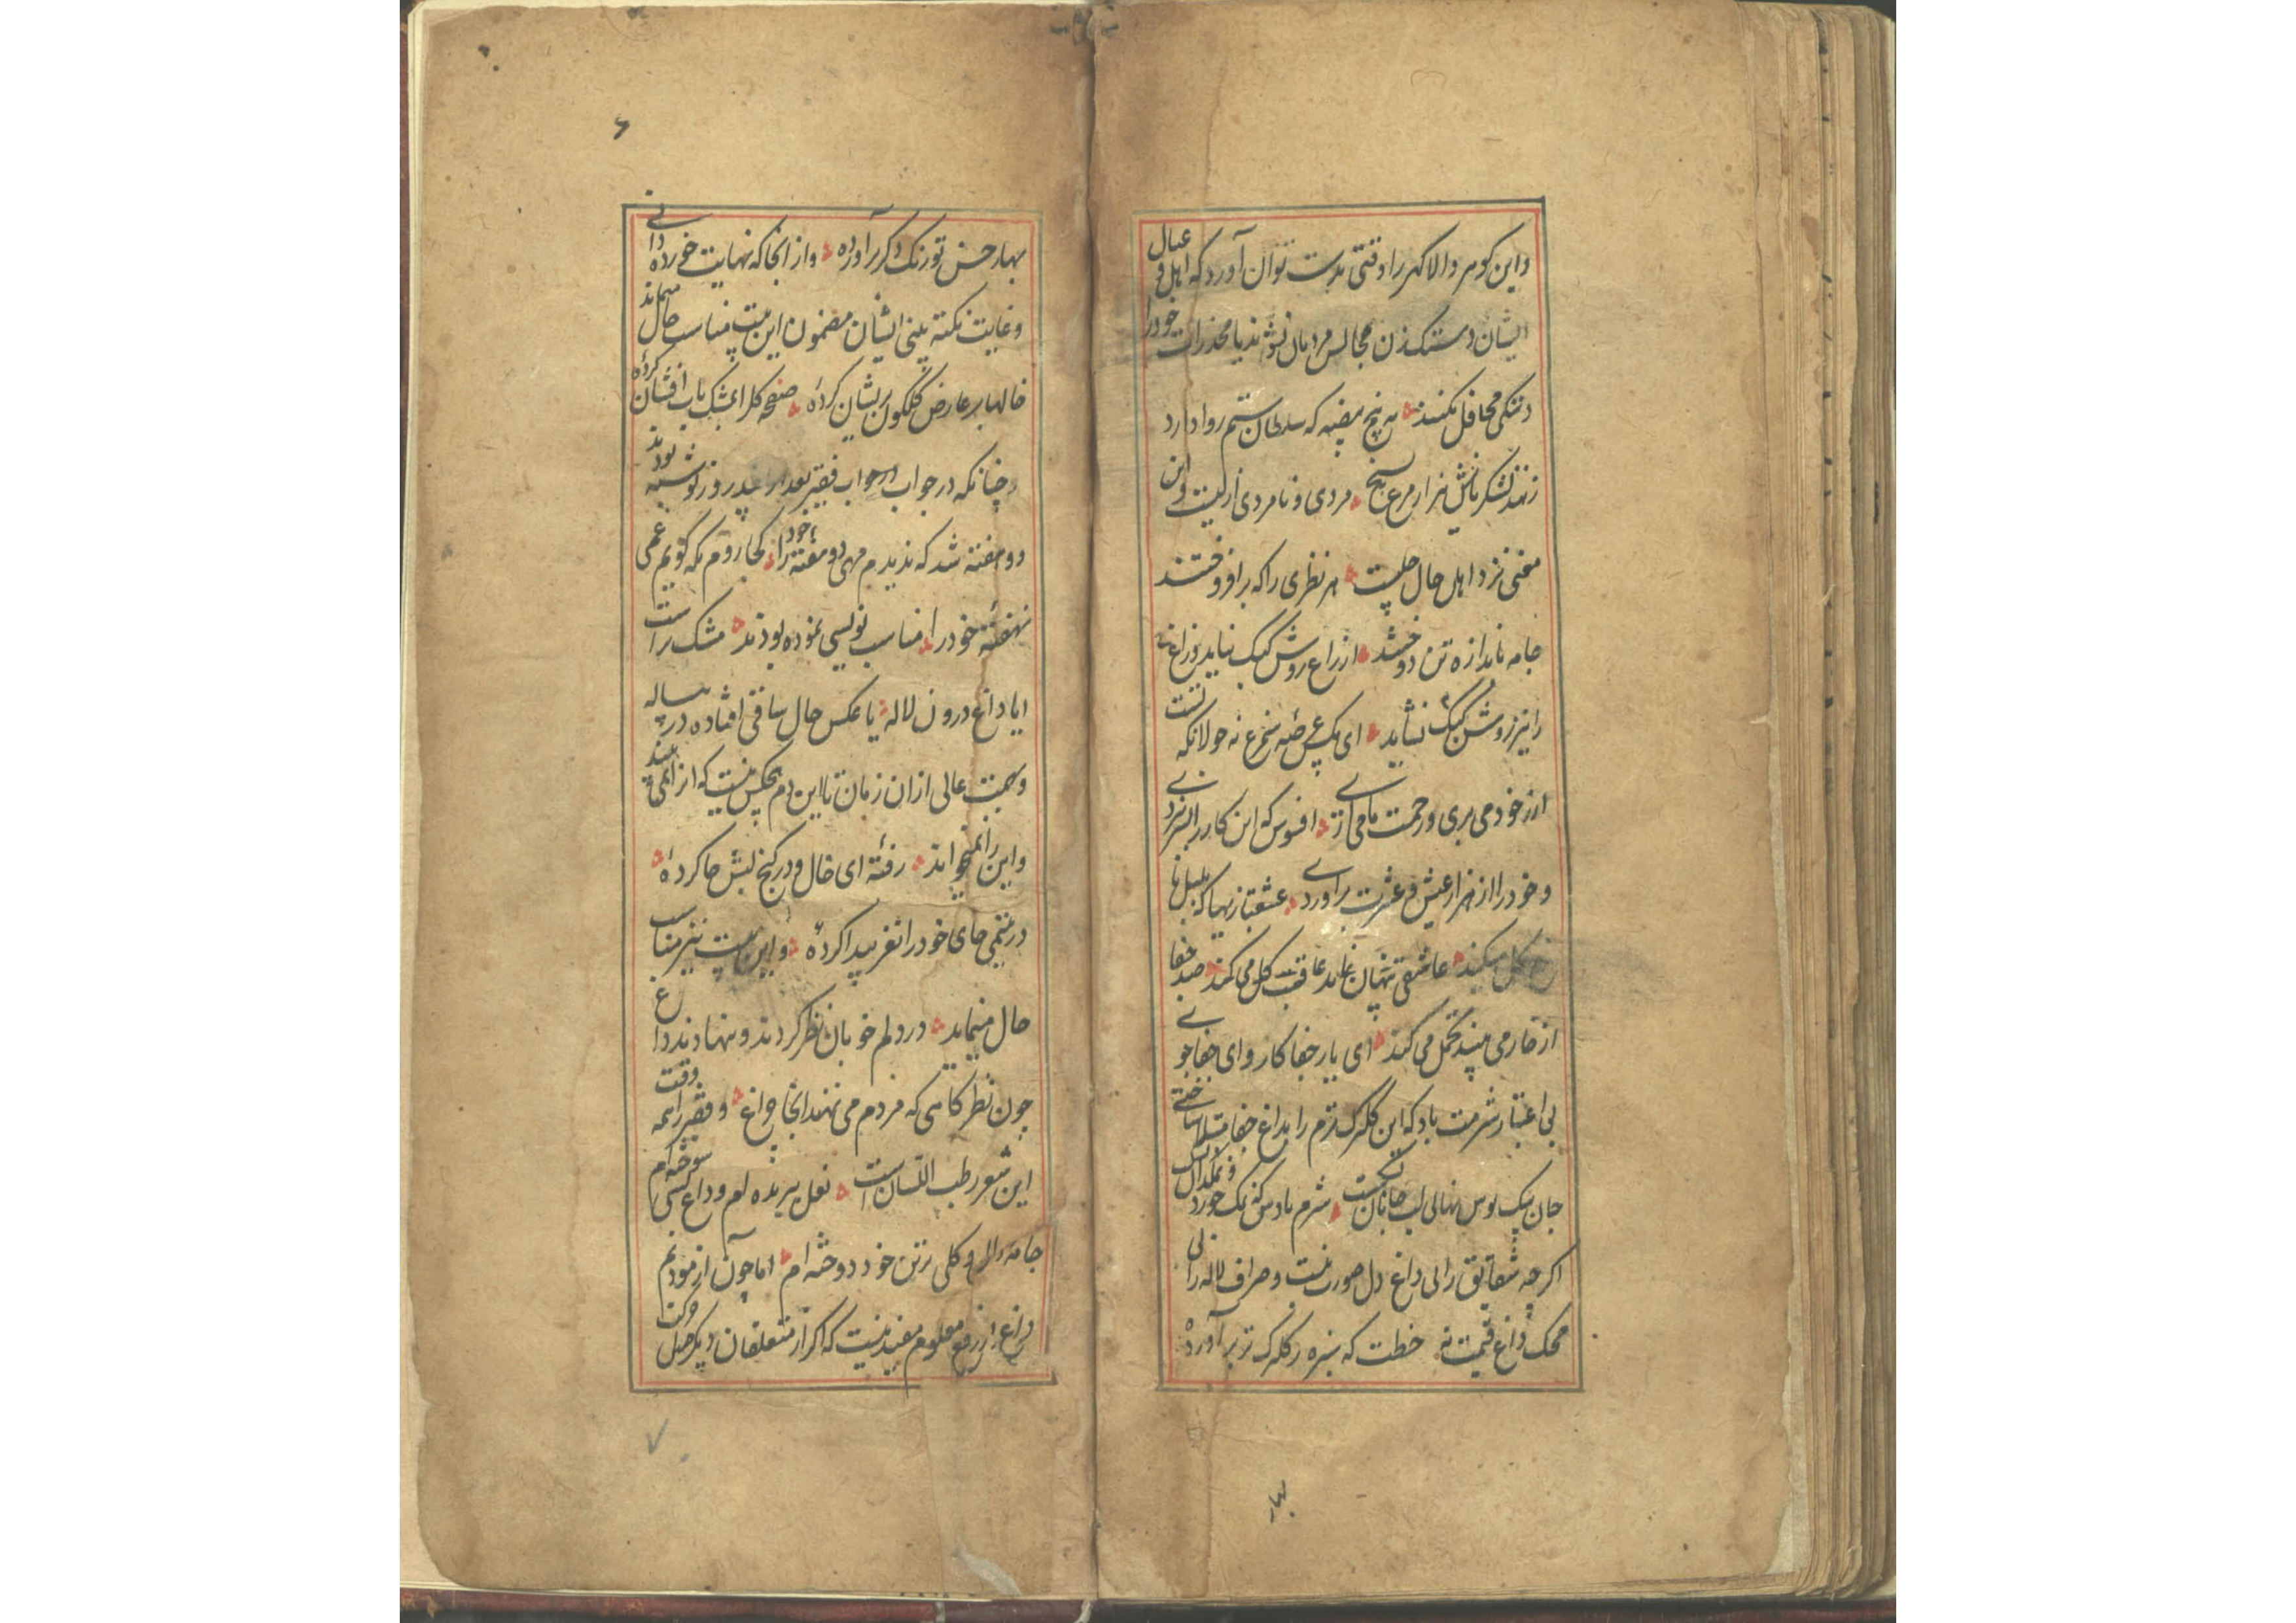 واین کوهر والا کهر را وقتی بدست توان آورد که اهل و عیال
ایشان دستک زن مجالس مردمان نشوند یا مخدرات خود را
دنتکی محافل نکنند به پنج بیضه که سلطان ستم روا دارد
زنند لشکریانش هزار مرغ بسیخ مردی و نامردی از کیست و این
معنی نزد اهل حال حلیست هر نظری را که برافروختند
جامه باندازه تن دوختند از زاغ روش کبک نیاید و زاغ
را نیز روش کبک نشاید ای مکس عرصه سیمرغ نه جولانکه تست
از خود می بری و زحمت ما می داری افسوس که این کار را بسر نبردی
و خود را از هزار عیش و عشرت برآوردی عشقبازیها که بلبل با
رخ کل میکند عاشقی پنهان نماند عاقبت کل می کند صد جفا
از خار می بیند تحمل می کند ای یار جفاکار و ای جفاجوی
بی اعتبار شرمت باد که این کلبرک ترم را بداغ جفا مبتلا ساختی
جان بیک بوس نهانی لب جانان نکست شرم بادش که نمک خورد و نمکدان
اکرچه شقایق را بی داغ دل صورت نیست و صراف لاله را بی
محک داغ قیمت نه خطت که سبزه ز کلبرک تر برآورده
بهار
۶
بهار حسن تو رنک دکر برآورده و از انجا که نهایت خورده دانی
و غایت نکته بینی ایشان مضمون این بیت مناسب حال
خالها بر عارض کلکون پریشان کرده صفحه کل را بمشک ناب افشان کرده
چنانکه در جواب فقیر بعد از چند روز نوشته بودند
دو هفته شد که ندیدم مهی دو هفته خود را کجا روم بکه کویم غمی
نهفته خود را مناسب نویسی نموده بودند مشک راست
ایا داغ درون لاله یا عکس خال ساقی افتاده در پیاله
و همت عالی از ان زمان تا این دم هیچکس نیست که از
و این را نمیخواند رفته ای خال و در کنج لبش جا کرده
در یتیمی جای خود را نغز پیدا کرده و این بیت نیز مناسب
حال مینماید در دلم خوبان نظر کردند و نهادند داغ
چون نظرکاهی که مردم می نهند انجا چراغ و فقیر را همه وقت
این شعر رطب اللسان است نعل ببریده ام و داغ کسی سوخته ام
جامه کلی بر تن خود دوخته ام اما چون آزمودیم
داغ معلوم مفید نیست که اکر از متعلقان دیکر
۷